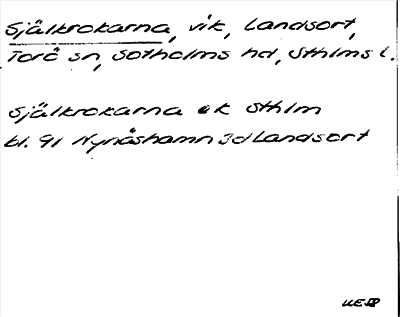 Själkrokarna, vik, Landsort,
Torö sn, Sotholms hd, Sthlms l.
Själkrokarna ek Sthlm
bl. 91 Nynäshamn 3d Landsort